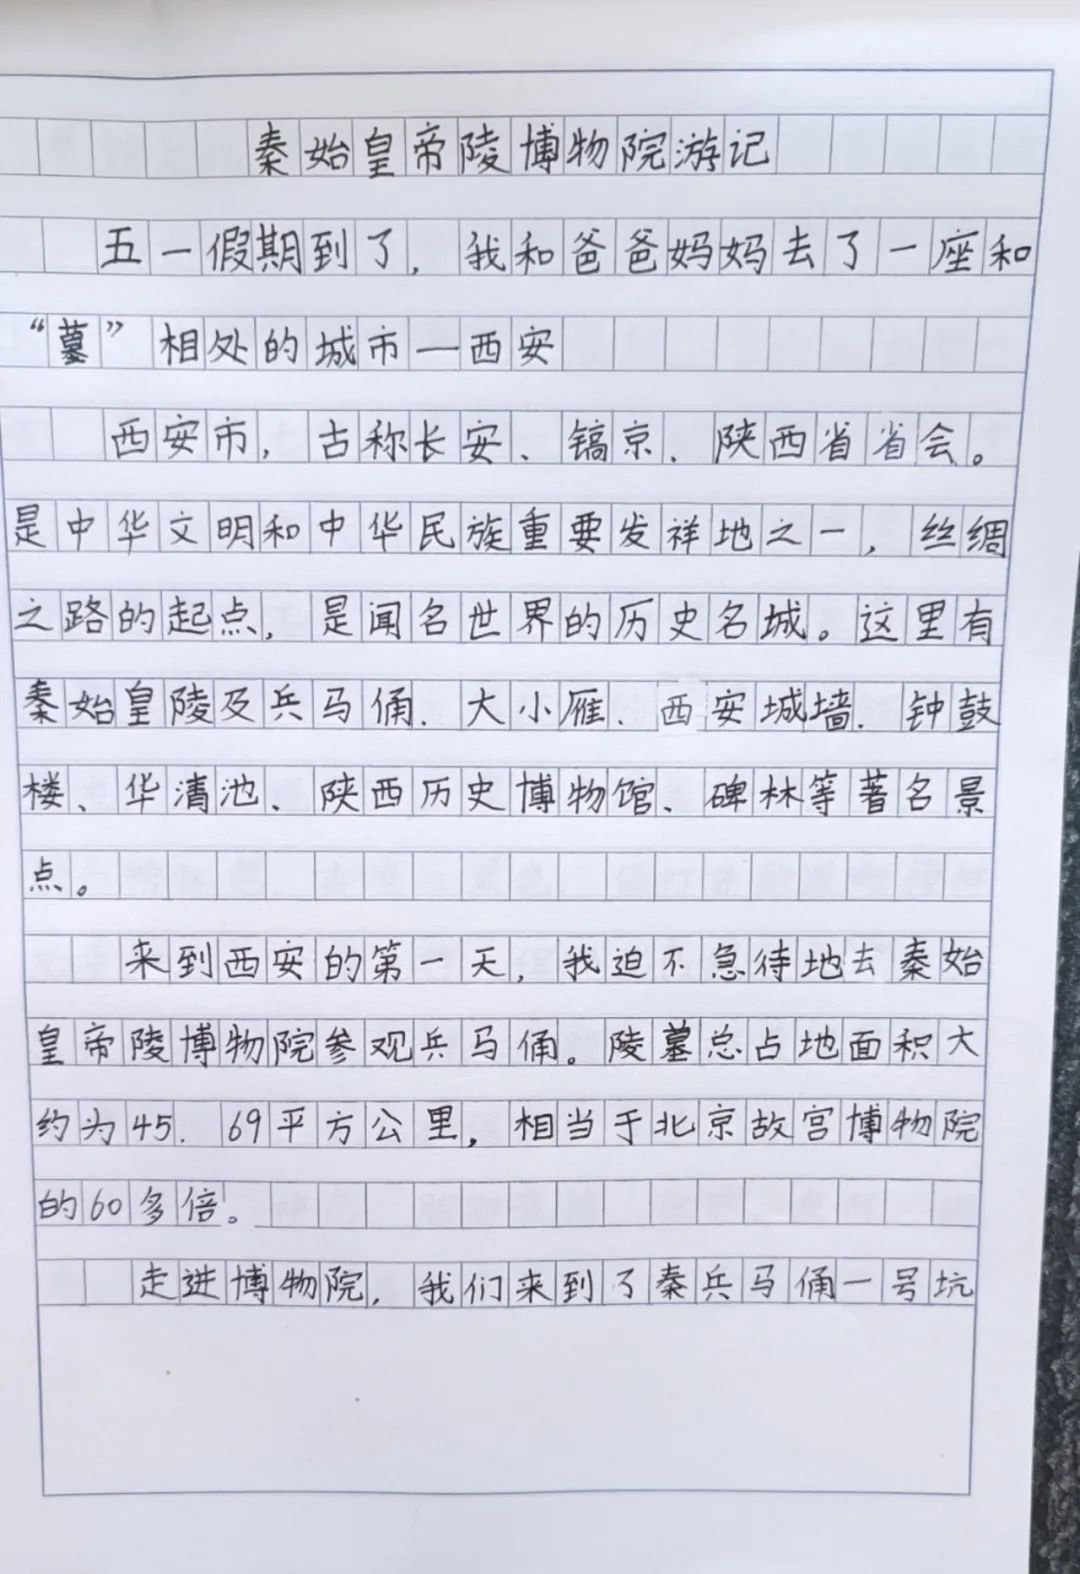 秦始皇帝陵博物院游记
五一假期到了，我和爸爸妈妈去了一座和
“墓”相处的城市—西安
西安市，古称长安、镐京、陕西省省会。
是中华文明和中华民族重要发祥地之一，丝绸
之路的起点，是闻名世界的历史名城。这里有
秦始皇陵及兵马俑、大小雁、西安城墙、钟鼓
楼、华清池、陕西历史博物馆、碑林等著名景
点。
来到西安的第一天，我迫不急待地去秦始
皇帝陵博物院参观兵马俑。陵墓总占地面积大
约为45.69平方公里，相当于北京故宫博物院
的60多倍。
走进博物院，我们来到了秦兵马俑一号坑